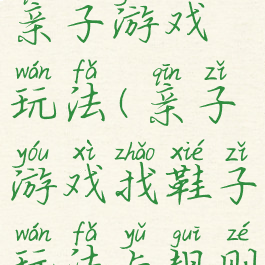 亲子游戏
wán fǎ qīn zǐ
玩法(亲子
yóu xì zhǎo xié zǐ
游戏找鞋子
wán fǎ yǔ guī zé
玩法与规则